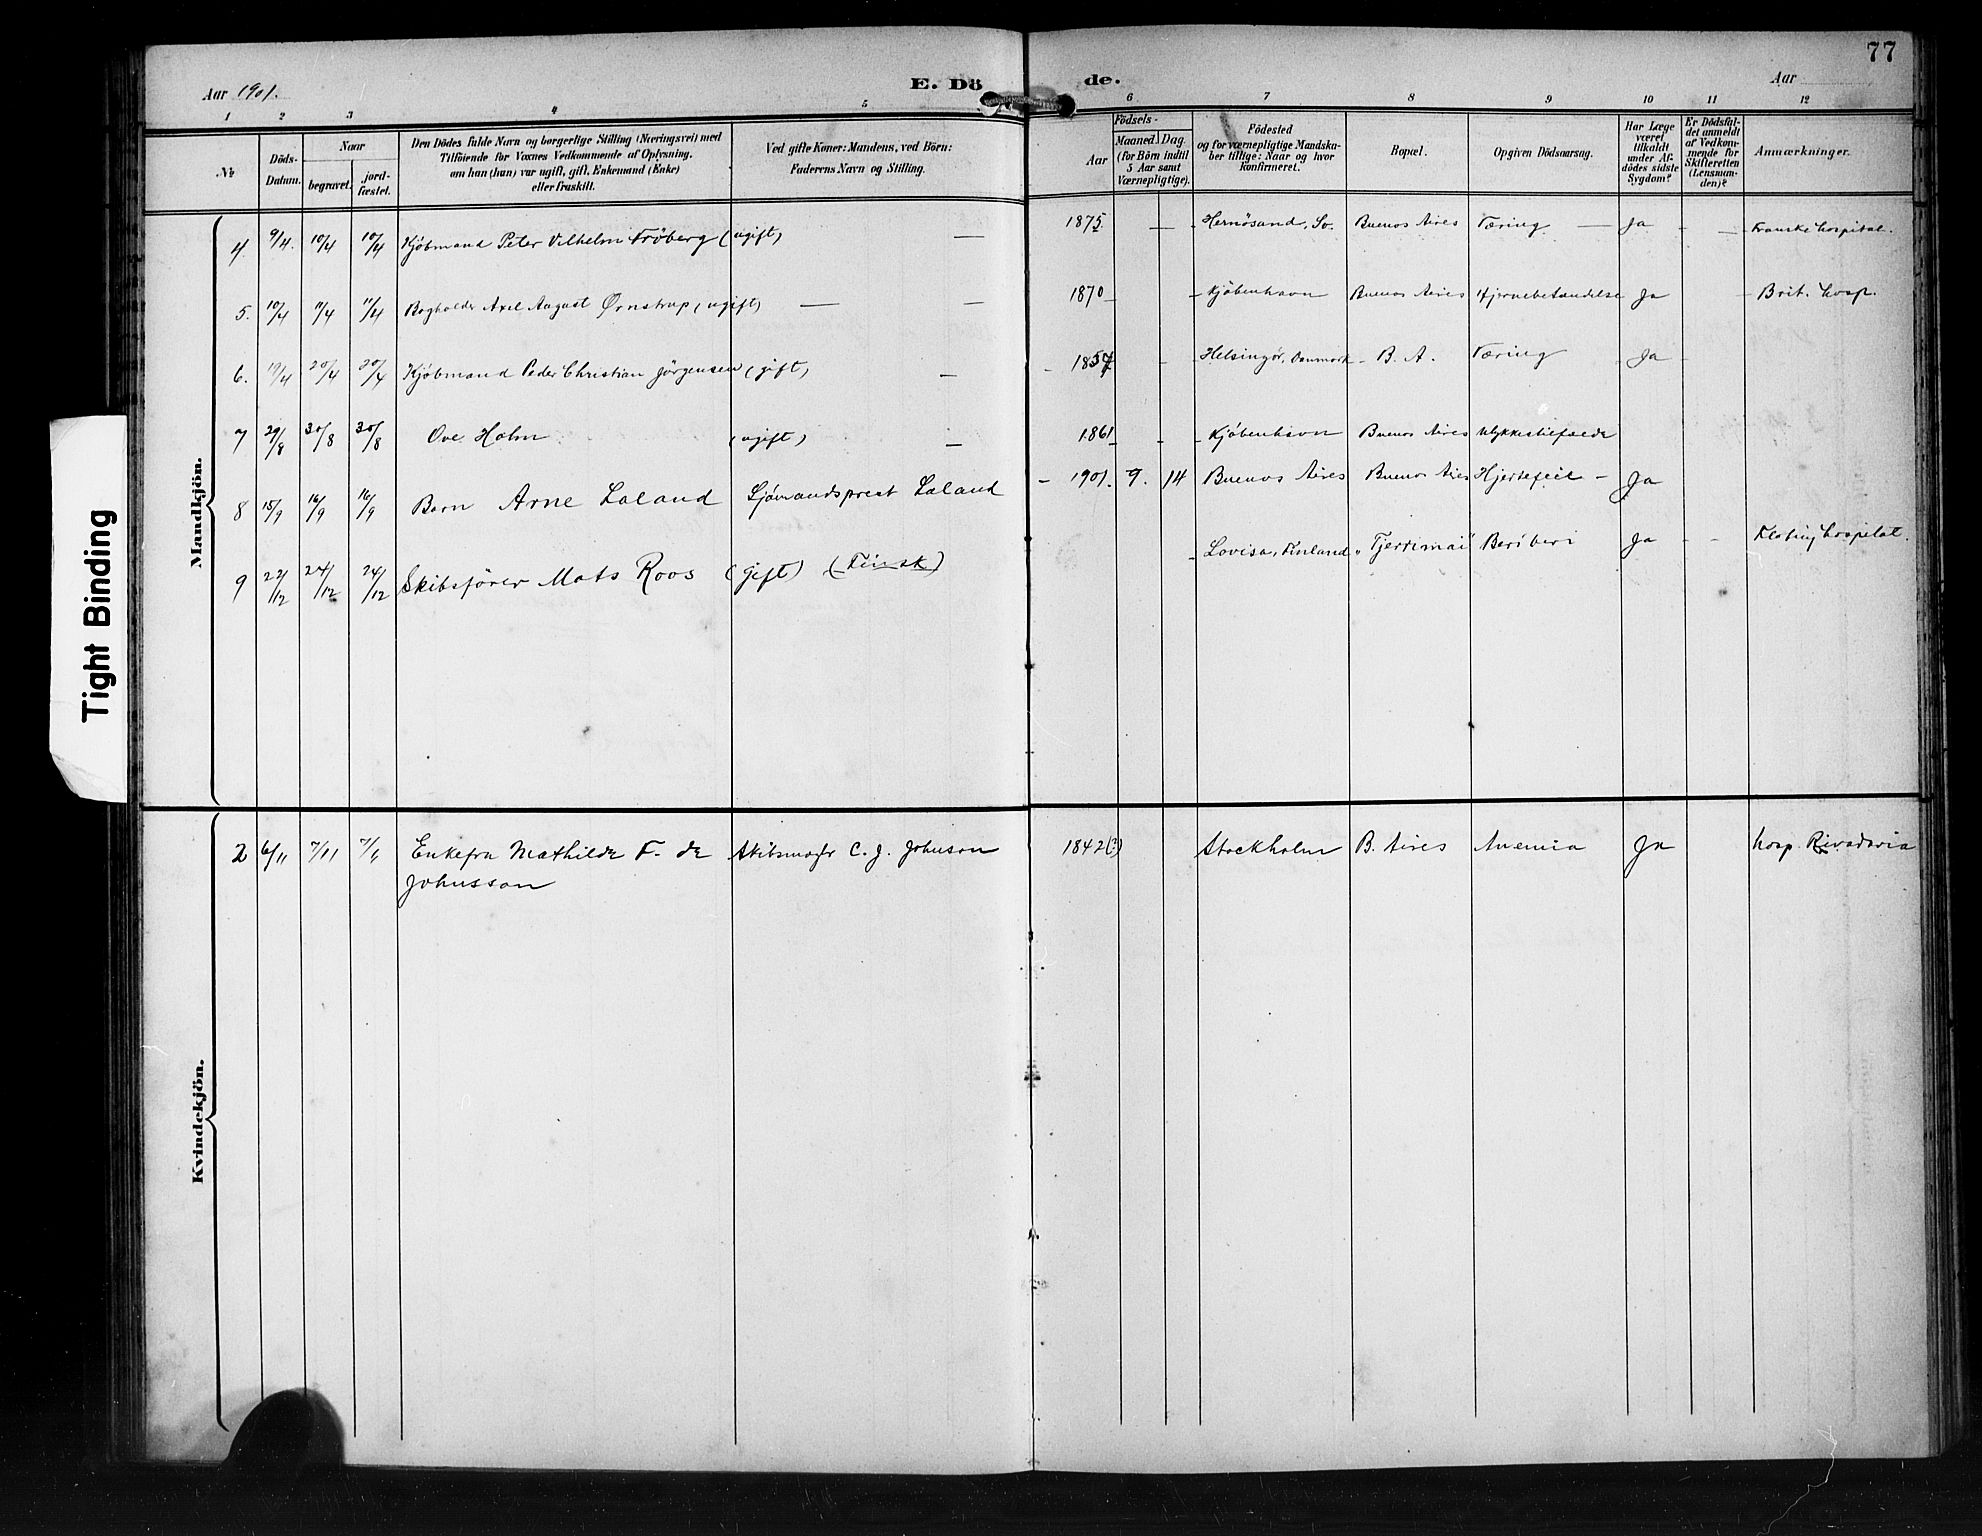 77
Aar 1901. E. Dö de. Aar
1 2 3 4 5 6 7 8 9 10 11 12
No
Döds-
Datum.
Naar
begravet.
jord-
fæstet.
Den Dödes fulde Navn og borgerlige Stilling (Næringsvei) med
Tilföiende for Voxnes Vedkommende af Oplysning,
om han (hun) var ugift, gift, Enkemand (Enke)
eller fraskilt.
Ved gifte Koner: Mandens, ved Börn:
Faderens Navn og Stilling.
Födsels-
Aar
Maaned. Dag.
(for Börn indtil
5 Aar samt
Værnepligtige).
Födested
og for værnepligtige Mandska-
ber tillige: Naar og hvor
konfirmeret.
Bopæl.
Opgiven Dödsaarsag.
Har Læge
været
tilkaldt
under Af-
dödes sidste
Sygdom?
Er Dödsfal-
det anmeldt
af Vedkom-
mende for
Skifteretten
(Lensman-
den)?
Anmærkninger.
Mandkjön.
4. 9/4. 10/4 10/4 Kjøbmand Peter Vilhelm Frøberg (ugift) — 1875 — — Hernøsand, Sv. Buenos Aires Tæring — Ja — — Franske hospital.
5. 10/4 11/4 11/4 Bogholder Axel August Ørnstrup (ugift) — — 1870 — Kjøbenhavn Buenos Aires Hjernebetændelse Ja — Brit. hosp.
6. 19/4 20/4 20/4 Kjøbmand Peder Christian Jørgensen (gift) — 1857 Helsingør, Danmark — B. A. Tæring Ja —
7 29/8 30/8 30/8 Ove Holm (ugift) — 1861 Kjøbenhavn Buenos Aires
8 15/9 16/9 16/9 Barn Arne Laland Sjømandsprest Laland — 1901. 9. 14 Buenos Aires Buenos Aires Hjertefeil — Ja
9 22/12 24/12 24/12 Skibsfører Mats Roos (Gift) (Finsk) Lovisa, Finland Beriberi Ja — hospital.
Kvindekjön.
2 6/11 7/11 Enkefru Mathilde F. de C. J. Johnson 1842(?) Stockholm B. Aires Anemia Ja hosp. Rivadavia
Johnsson
Tight Binding